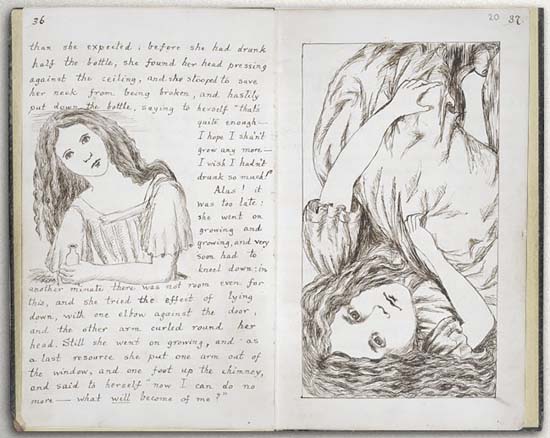 36
than she expected: before she had drunk
half the bottle, she found her head pressing
against the ceiling, and she stooped to save
her neck from being broken, and hastily
put down the bottle, saying to herself "that's
quite enough—
I hope I sha'n't
grow any more—
I wish I hadn't
drunk so much!"
Alas! it
was too late:
she went on
growing and
growing, and very
soon had to
kneel down: in
another minute there was not room even for
this, and she tried the effect of lying
down, with one elbow against the door,
and the other arm curled round her
head. Still she went on growing, and as
a last resource she put one arm out of
the window, and one foot up the chimney,
and said to herself "now I can do no
more—what will become of me?"
20 37